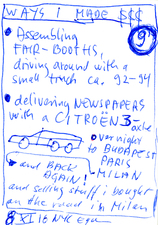 WAYS I MADE $$€
9
• Assembling
FAIR-BOOTHS,
driving around with a
small truck ca. 92-94
• delivering NEWSPAPERS
with a CITROËN 3-axle
overnight
to BUDAPEST
PARIS
MILAN
and BACK
AGAIN!
and selling stuff i bought
on the road in Milan!
8 XI 16 NYC